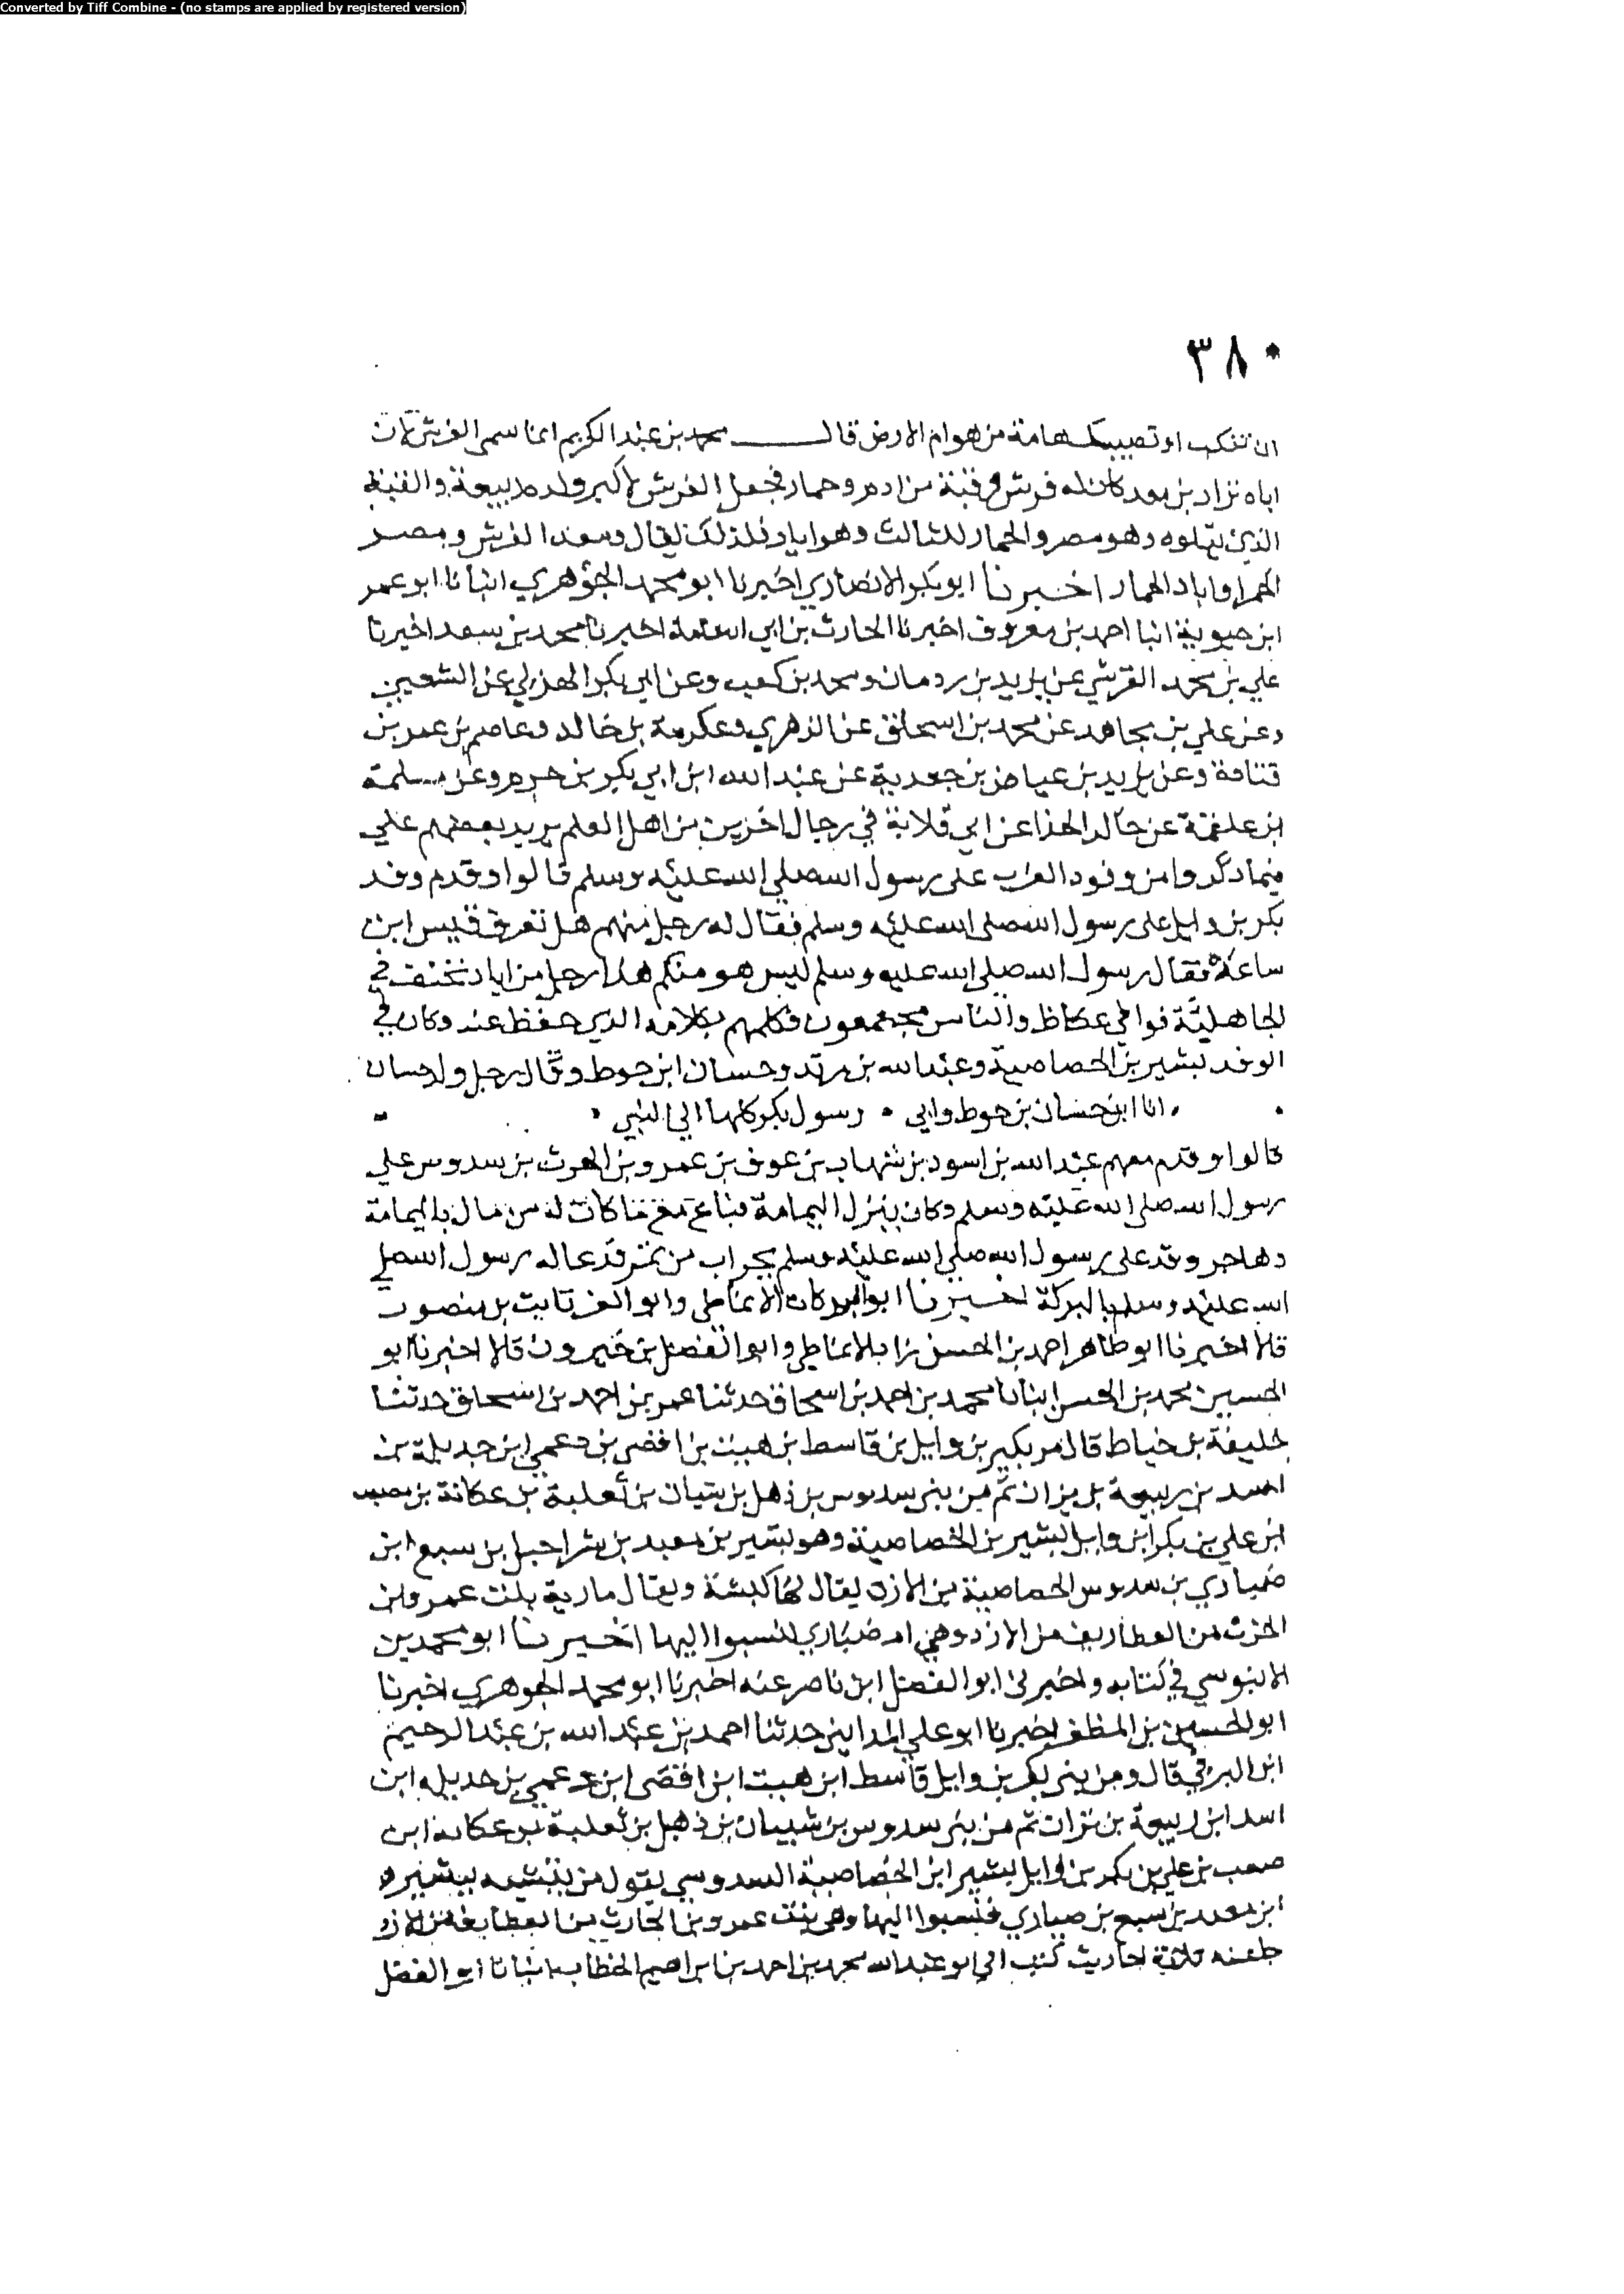 Converted by Tiff Combine - (no stamps are applied by registered version)
٣٨٠
ان تنكب او تصيبك هامة من هوام الارض قال محمد بن عبد الكريم انما سمي الفرس لان
اباه نزار بن معد كان له فرس وقبة من ادم وحمار فجعل الفرس لاكبر ولده ربيعة والقبة
الذي يتلوه وهو مضر والحمار للثالث وهو اياد فلذلك يقال ربيعة الفرس ومضر
الحمرا واياد الحمار اخبرنا ابو بكر الانصاري اخبرنا ابو محمد الجوهري انبانا ابو عمر
ابن حيوية انبا احمد بن معروف اخبرنا الحارث بن ابي اسامة اخبرنا محمد بن سعد اخبرنا
علي بن محمد القرشي عن يزيد بن رومان ومحمد بن كعب وعن ابي بكر الهذلي عن الشعبي
وعن علي بن مجاهد عن محمد بن اسحاق عن الزهري وعكرمة بن خالد وعاصم بن عمر بن
قتادة وعن يزيد بن عياض بن جعدبة عن عبد الله ابن ابي بكر بن حزم وعن مسلمة
بن علقمة عن خالد الحذا عن ابي قلابة في رجال اخرين من اهل العلم يزيد بعضهم علي
فيما ذكروا من وفود العرب على رسول الله صلي الله عليه وسلم قالوا وقدم وفد
بكر بن وايل على رسول الله صلى الله عليه وسلم فقال له رجل منهم هل تعرف قيس ابن
ساعدة فقال رسول الله صلى الله عليه وسلم ليس هو منكم هذا رجل من اياد تحنف في
الجاهلية فوافي عكاظ والناس مجتمعون فكلمهم بكلامه الذي حفظ عنه وكان في
الوفد بشير بن الخصاصية وعبد الله بن مرثد وحسان ابن حوط وقال رجل ولد حسان
انا ابن حسان بن حوط وابي • رسول بكر كلها الي النبي
قالوا وقدم معهم عبد الله بن اسود بن شهاب بن عوف بن عمرو بن الحرث بن سدوس علي
رسول الله صلى الله عليه وسلم وكان ينزل اليمامة فباع ما كان له من مال باليمامة
وهاجر وقدم على رسول الله صلي الله عليه وسلم بجراب من تمر فدعا له رسول الله صلي
الله عليه وسلم بالبركة اخبرنا ابو البركات الانماطي وابو العز ثابت بن منصور
قالا اخبرنا ابو طاهر احمد بن الحسن زاد الانماطي وابو الفضل بن خيرون قالا اخبرنا ابو
الحسين محمد بن الحسن انبانا محمد بن احمد بن اسحاق حدثنا عمر بن احمد بن اسحاق حدثنا
خليفة بن خياط قال من بكير بن وايل بن قاسط بن هبنب بن افصى بن دعمي ابن جديلة بن
اسد بن ربيعة بن نزار ثم من بني سدوس بن ذهل بن شيبان بن ثعلبة بن عكابة بن صعب
ابن علي بن بكر ابن وايل بشير بن الخصاصية وهو بشير بن معبد بن شراحيل بن سبع ابن
ضباري بن سدوس الخصاصية من الازد يقال لها كبشة ويقال مارية بنت عمرو بن
الحرث من الغطاريف من الازد وهي ام ضباري نسبوا اليها اخبرنا ابو محمد بن
الابنوسي في كتابه واخبرني ابو الفضل ابن ناصر عنه اخبرنا ابو محمد الجوهري اخبرنا
ابو الحسين بن المظفر اخبرنا ابو علي المدايني حدثنا احمد بن عبد الله بن عبد الرحيم
ابن البرقي قال ومن بني بكر بن وايل قاسط ابن هنب ابن افصى ابن دعمي بن جديلة ابن
اسد ابن ربيعة بن نزار ثم من بني سدوس بن شيبان بن ذهل بن ثعلبة بن عكابة ابن
صعب بن علي بن بكر بن وايل بشير ابن الخصاصية السدوسي يقول من ينسبه بشير
ابن معبد بن سبع بن ضباري فنسبوا اليها وهي بنت عمرو بن الحارث من الغطاريف من الازد
جا عنه ثلاثة احاديث كتب الي ابو عبد الله محمد بن احمد بن ابراهيم الخطاب انبانا ابو الفضل